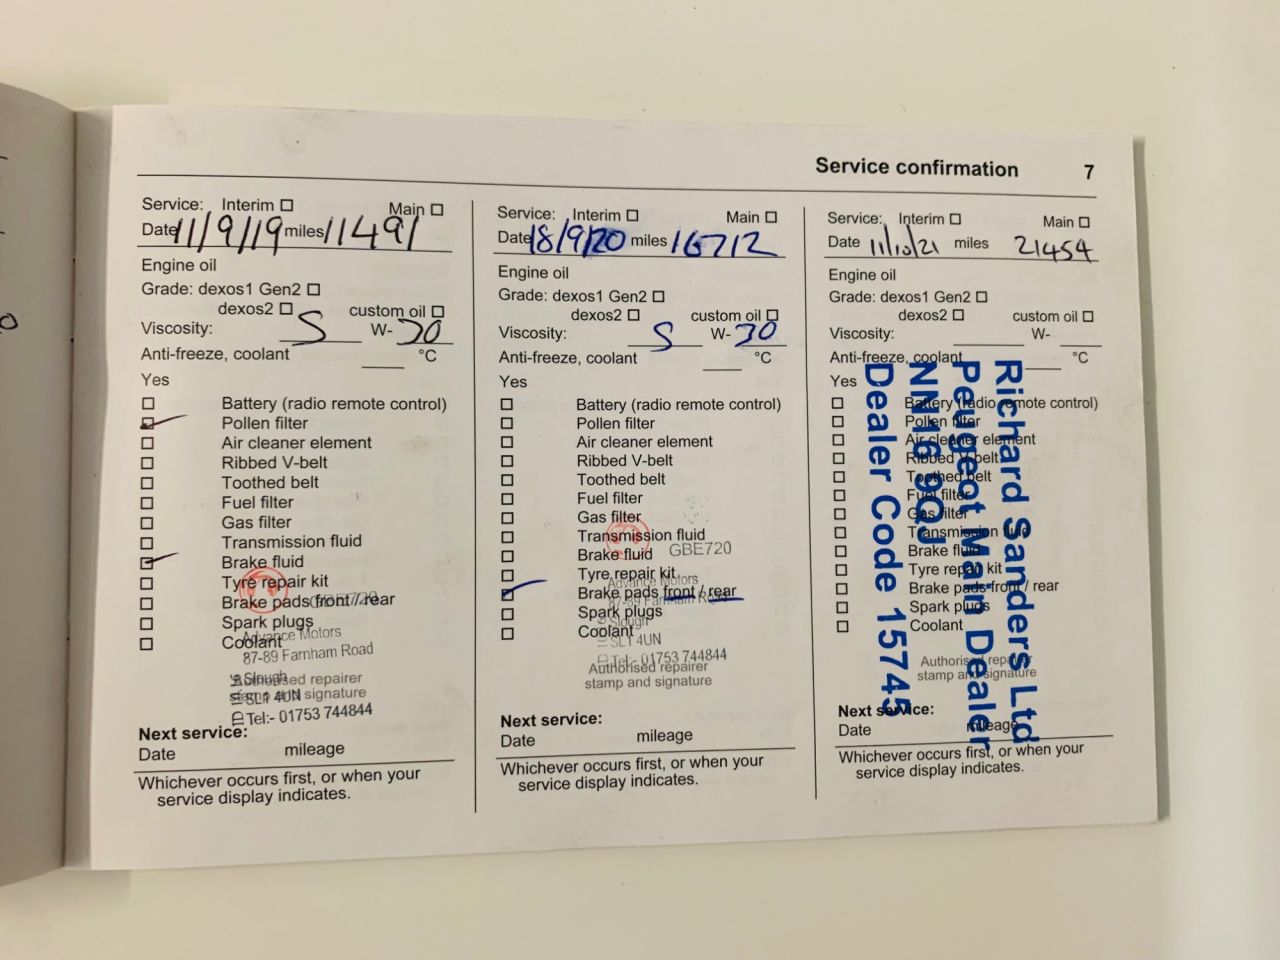 Service confirmation 7
Service: Interim Main
Date 11/9/19 miles 11491
Engine oil
Grade: dexos1 Gen2
dexos2 custom oil
Viscosity: 5 W- 30
Anti-freeze, coolant °C
Yes
Battery (radio remote control)
Pollen filter
Air cleaner element
Ribbed V-belt
Toothed belt
Fuel filter
Gas filter
Transmission fluid
Brake fluid
Tyre repair kit
Brake pads front / rear
GBE720
Spark plugs
Coolant
Advance Motors
87-89 Farnham Road
Slough
SL1 4UN
Tel:- 01753 744844
Authorised repairer
stamp and signature
Next service:
Date mileage
Whichever occurs first, or when your
service display indicates.
Service: Interim Main
Date 18/9/20 miles 16712
Engine oil
Grade: dexos1 Gen2
dexos2 custom oil
Viscosity: 5 W- 30
Anti-freeze, coolant °C
Yes
Battery (radio remote control)
Pollen filter
Air cleaner element
Ribbed V-belt
Toothed belt
Fuel filter
Gas filter
Transmission fluid
Brake fluid GBE720
Tyre repair kit
Advance Motors
Brake pads front / rear
87-89 Farnham Road
Spark plugs
Slough
Coolant
SL1 4UN
Tel:- 01753 744844
Authorised repairer
stamp and signature
Next service:
Date mileage
Whichever occurs first, or when your
service display indicates.
Service: Interim Main
Date 11/10/21 miles 21454
Engine oil
Grade: dexos1 Gen2
dexos2 custom oil
Viscosity: W-
Anti-freeze, coolant °C
Yes
Battery (radio remote control)
Pollen filter
Air cleaner element
Ribbed V-belt
Toothed belt
Fuel filter
Gas filter
Transmission fluid
Brake fluid
Tyre repair kit
Brake pads front / rear
Spark plugs
Coolant
Authorised repairer
stamp and signature
Richard Sanders Ltd
Peugeot Main Dealer
NN16 9QJ
Dealer Code 15745
Next service:
Date mileage
Whichever occurs first, or when your
service display indicates.